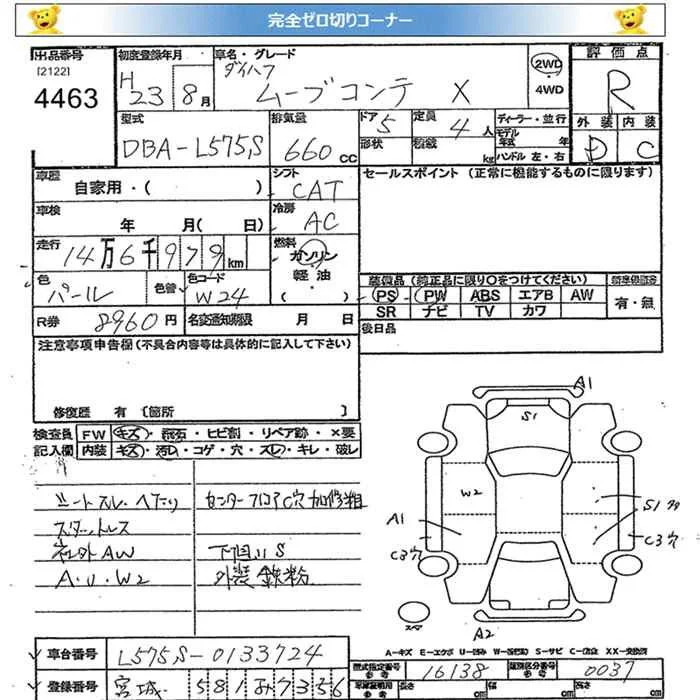 完全ゼロ切りコーナー
出品番号
[2122]
4463
初度登録年月
H 23 8月
車名・グレード
ダイハツ
ムーブコンテ X
2WD
4WD
評価点
R
外装 内装
D C
型式
DBA-L575S
排気量
660 cc
ドア 5
形状
定員 4 人
積載 kg
ディーラー・並行
モデル年式 年
ハンドル 左・右
車歴
自家用・( )
シフト
CAT
セールスポイント (正常に機能するものに限ります)
車検
年 月( 日)
冷房
AC
走行
14万6千979km
燃料
ガソリン
軽油
( )
色
パール
色替
色コード
W24
装備品 (純正品に限り○をつけてください)
PS PW ABS エアB AW
SR ナビ TV カワ
有・無
R券 8960円
名変通知期限 月 日
後日品
注意事項申告欄 (不具合内容等は具体的に記入して下さい)
修復歴 有 [箇所 ]
検査員
記入欄
FW キズ・飛石・ヒビ割・リペア跡・×要
内装 キズ・汚レ・コゲ・穴・スレ・キレ・破レ
シートスレ・ヘたり
スタートレス
社外AW
A・U・W2
センターフロアC穴加修粗
下回りS
外装鉄粉
A1
S1
W2
A1
C3穴
S1タ
C3穴
スマ
A2
A-キズ E-エクボ U-凹み W-(波) S-サビ C-(腐食) XX-交換済
車台番号 L575S-0133724
登録番号 宮城 581 み 7356
型式指定番号 参考 16138
類別区分番号 参考 0037
車検証明用 参考
長さ cm
幅 cm
高さ cm